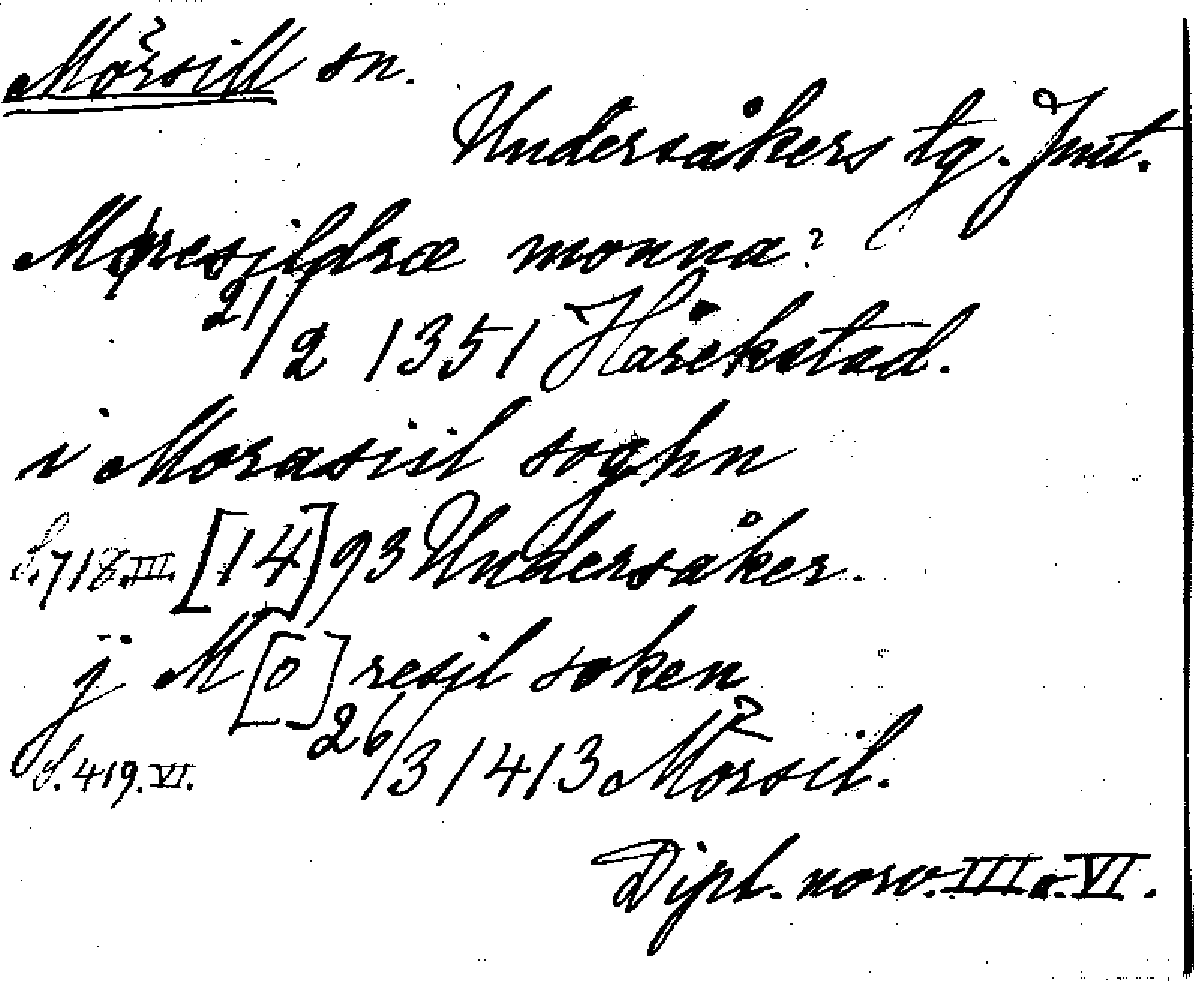 Mörsill sn.
Undersåkers tg. Jmt.
Møresildræ monna?
21/2 1351 Hårekstad.
i Morasiil soghn
S.718.III. [14]93 Undersåker.
j M[o]resil soken
S.419.VI. 26/3 1413 Mörsil.
Dipl. norv. III o. VI.